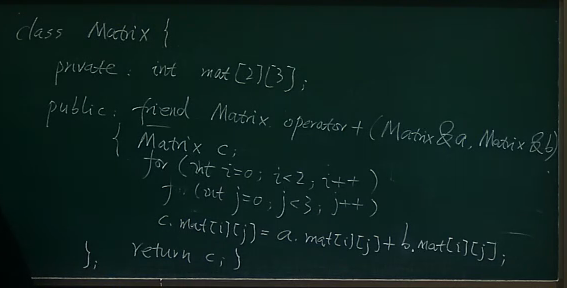 class Matrix {
private: int mat[2][3];
public: friend Matrix operator+ (Matrix &a, Matrix &b)
{ Matrix c;
for (int i=0; i<2; i++)
(int j=0; j<3; j++)
c.mat[i][j] = a.mat[i][j]+b.mat[i][j];
}; return c; }